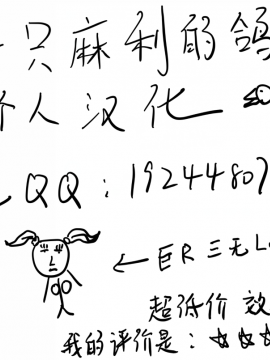 只麻利的鸽
个人汉化
QQ：19244807
ER三无L
超低价 效
我的评价是：